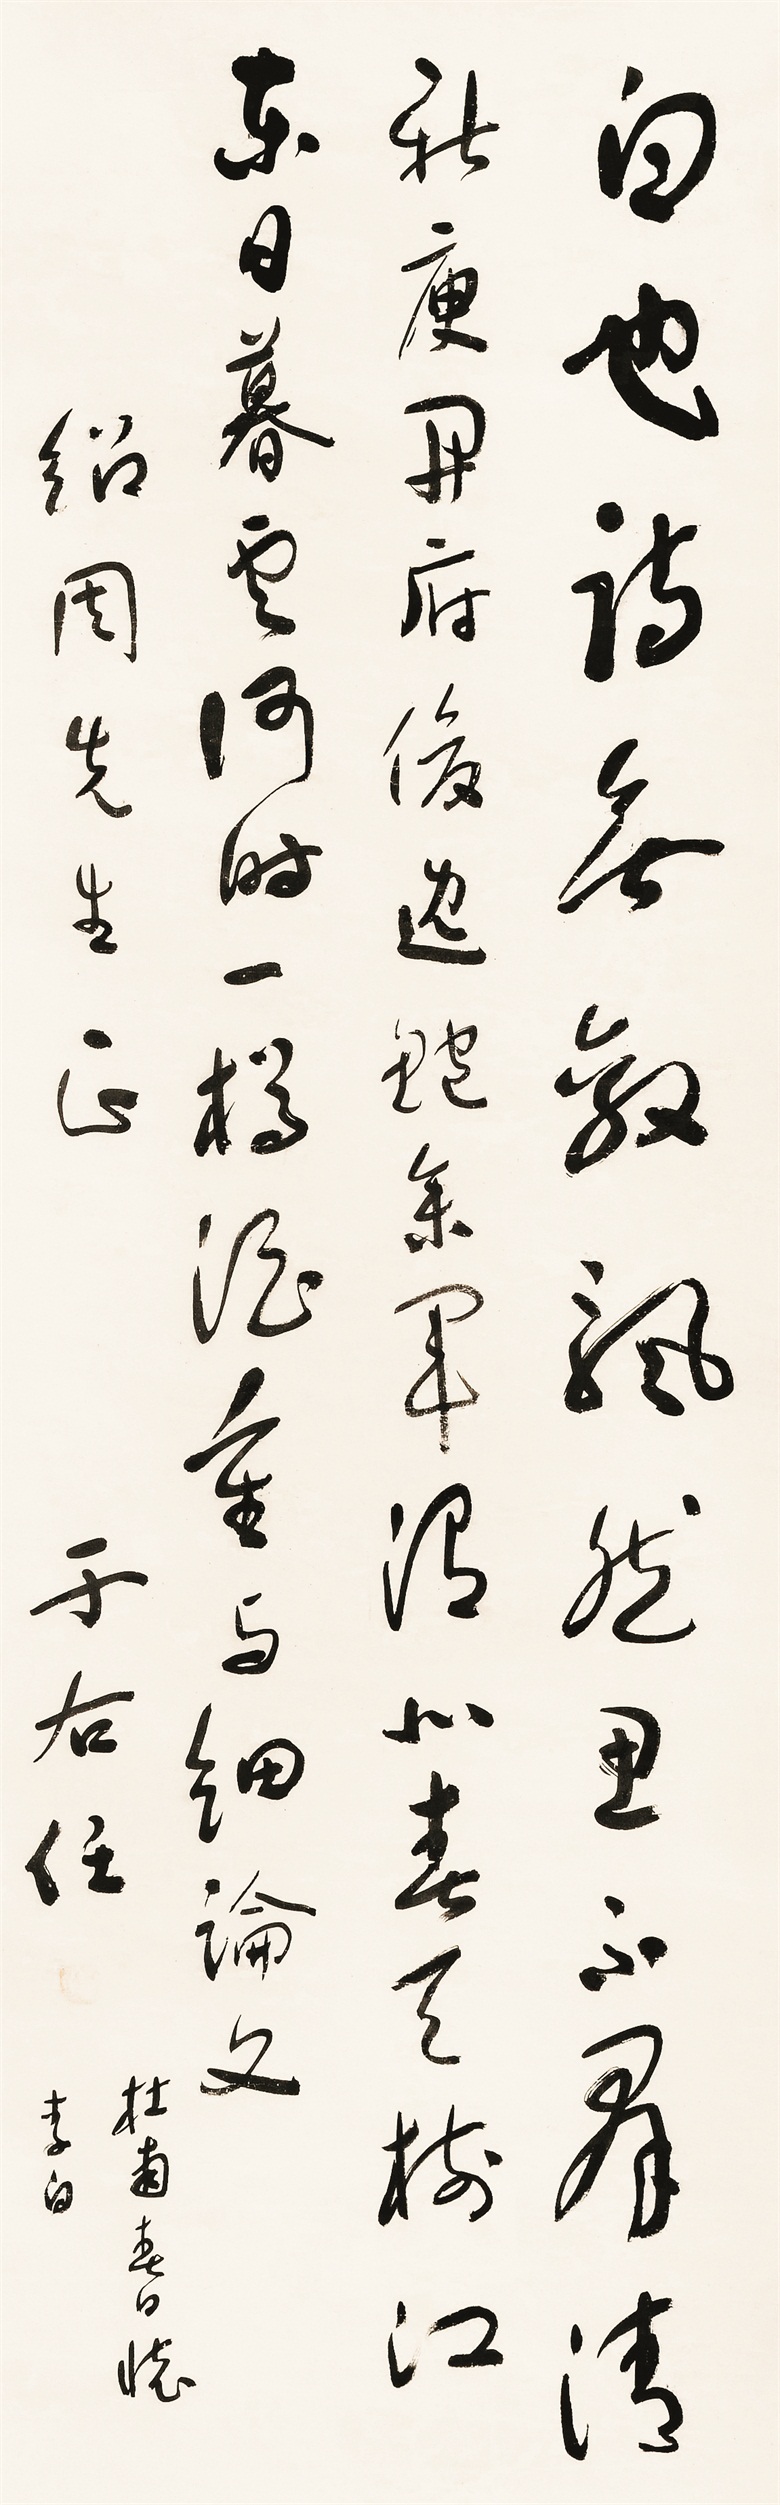 白也詩無敵飄然思不群清
新庾開府俊逸鮑參軍渭北春天樹江
東日暮雲何時一樽酒重与細論文
杜甫春日憶
李白
紹周先生正
于右任